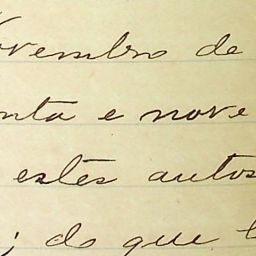 Novembro de
nta e nove
estes autos
; do que